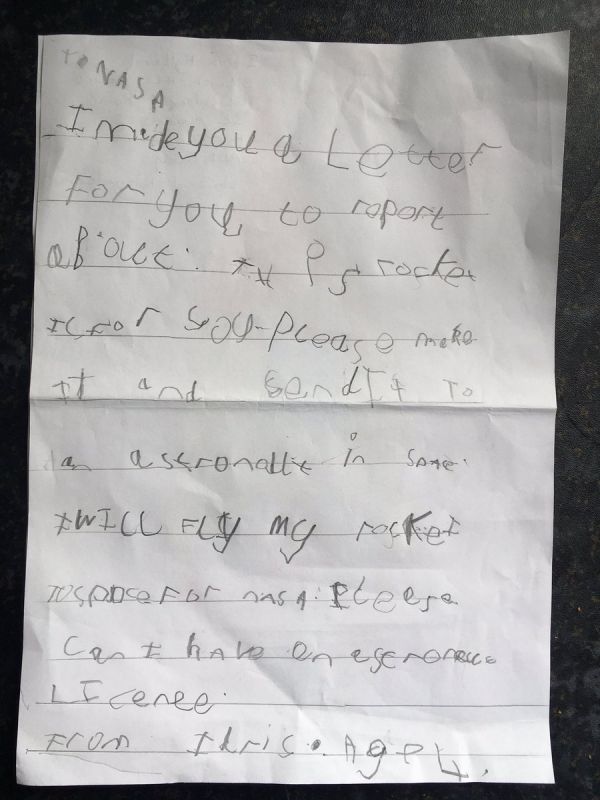 TO NASA
I made you a Letter
For you to roport
aBout. rocket
For you Please make
It and send It To
an astronalt in
I WILL FLIy my rocket
to spase For nasA Pleease
Can I have an
LIcence.
From Idris. Age 4.